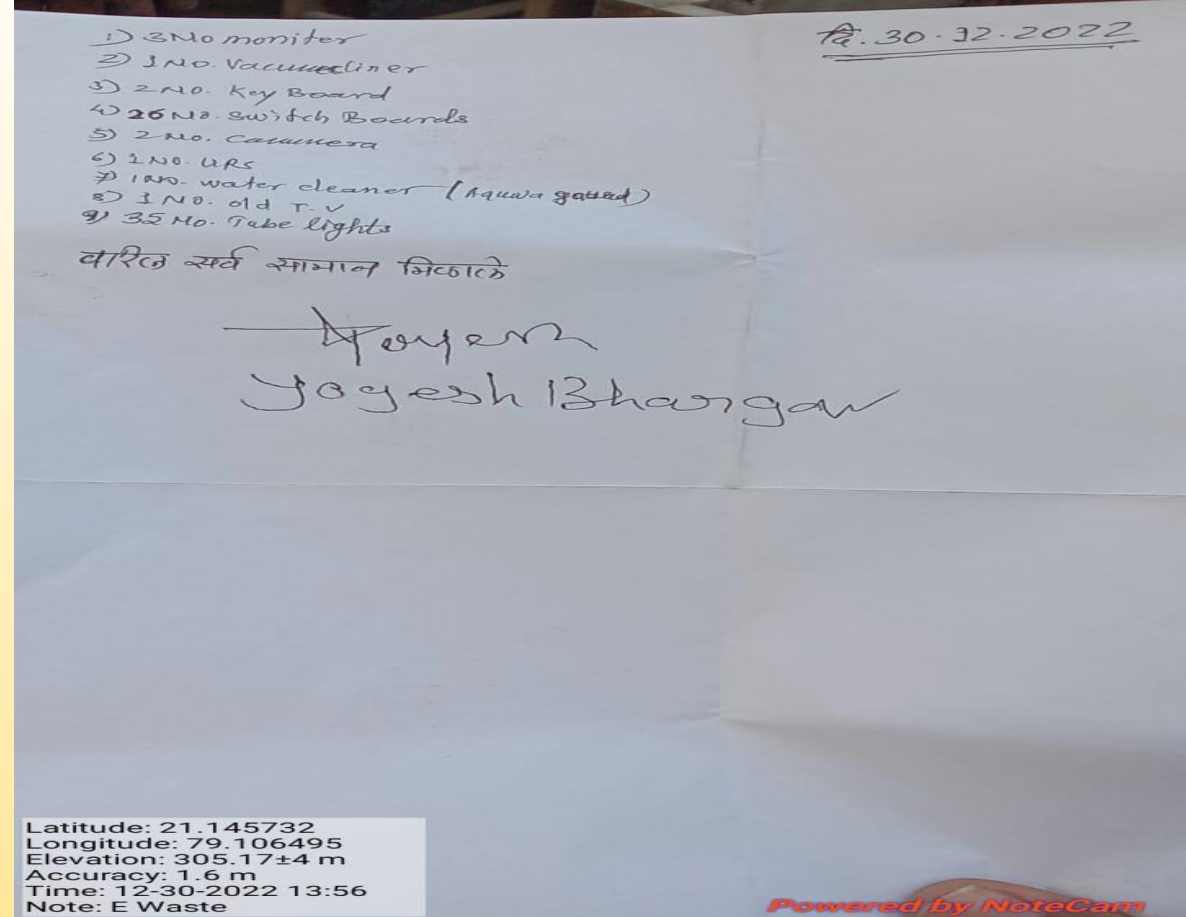 दि. 30.12.2022
1) 3 No moniter
2) 1 No. Vacuumecliner
3) 2 No. Key Board
4) 26 No. Switch Boards
5) 2 No. Cammera
6) 1 No. UPS
7) 1 No. water cleaner (Aquwa gaurd)
8) 1 No. old T.V
9) 35 No. Tube lights
वरिल सर्व सामान मिळाले
Yogesh Bhargav
Latitude: 21.145732
Longitude: 79.106495
Elevation: 305.17±4 m
Accuracy: 1.6 m
Time: 12-30-2022 13:56
Note: E Waste
Powered by NoteCam